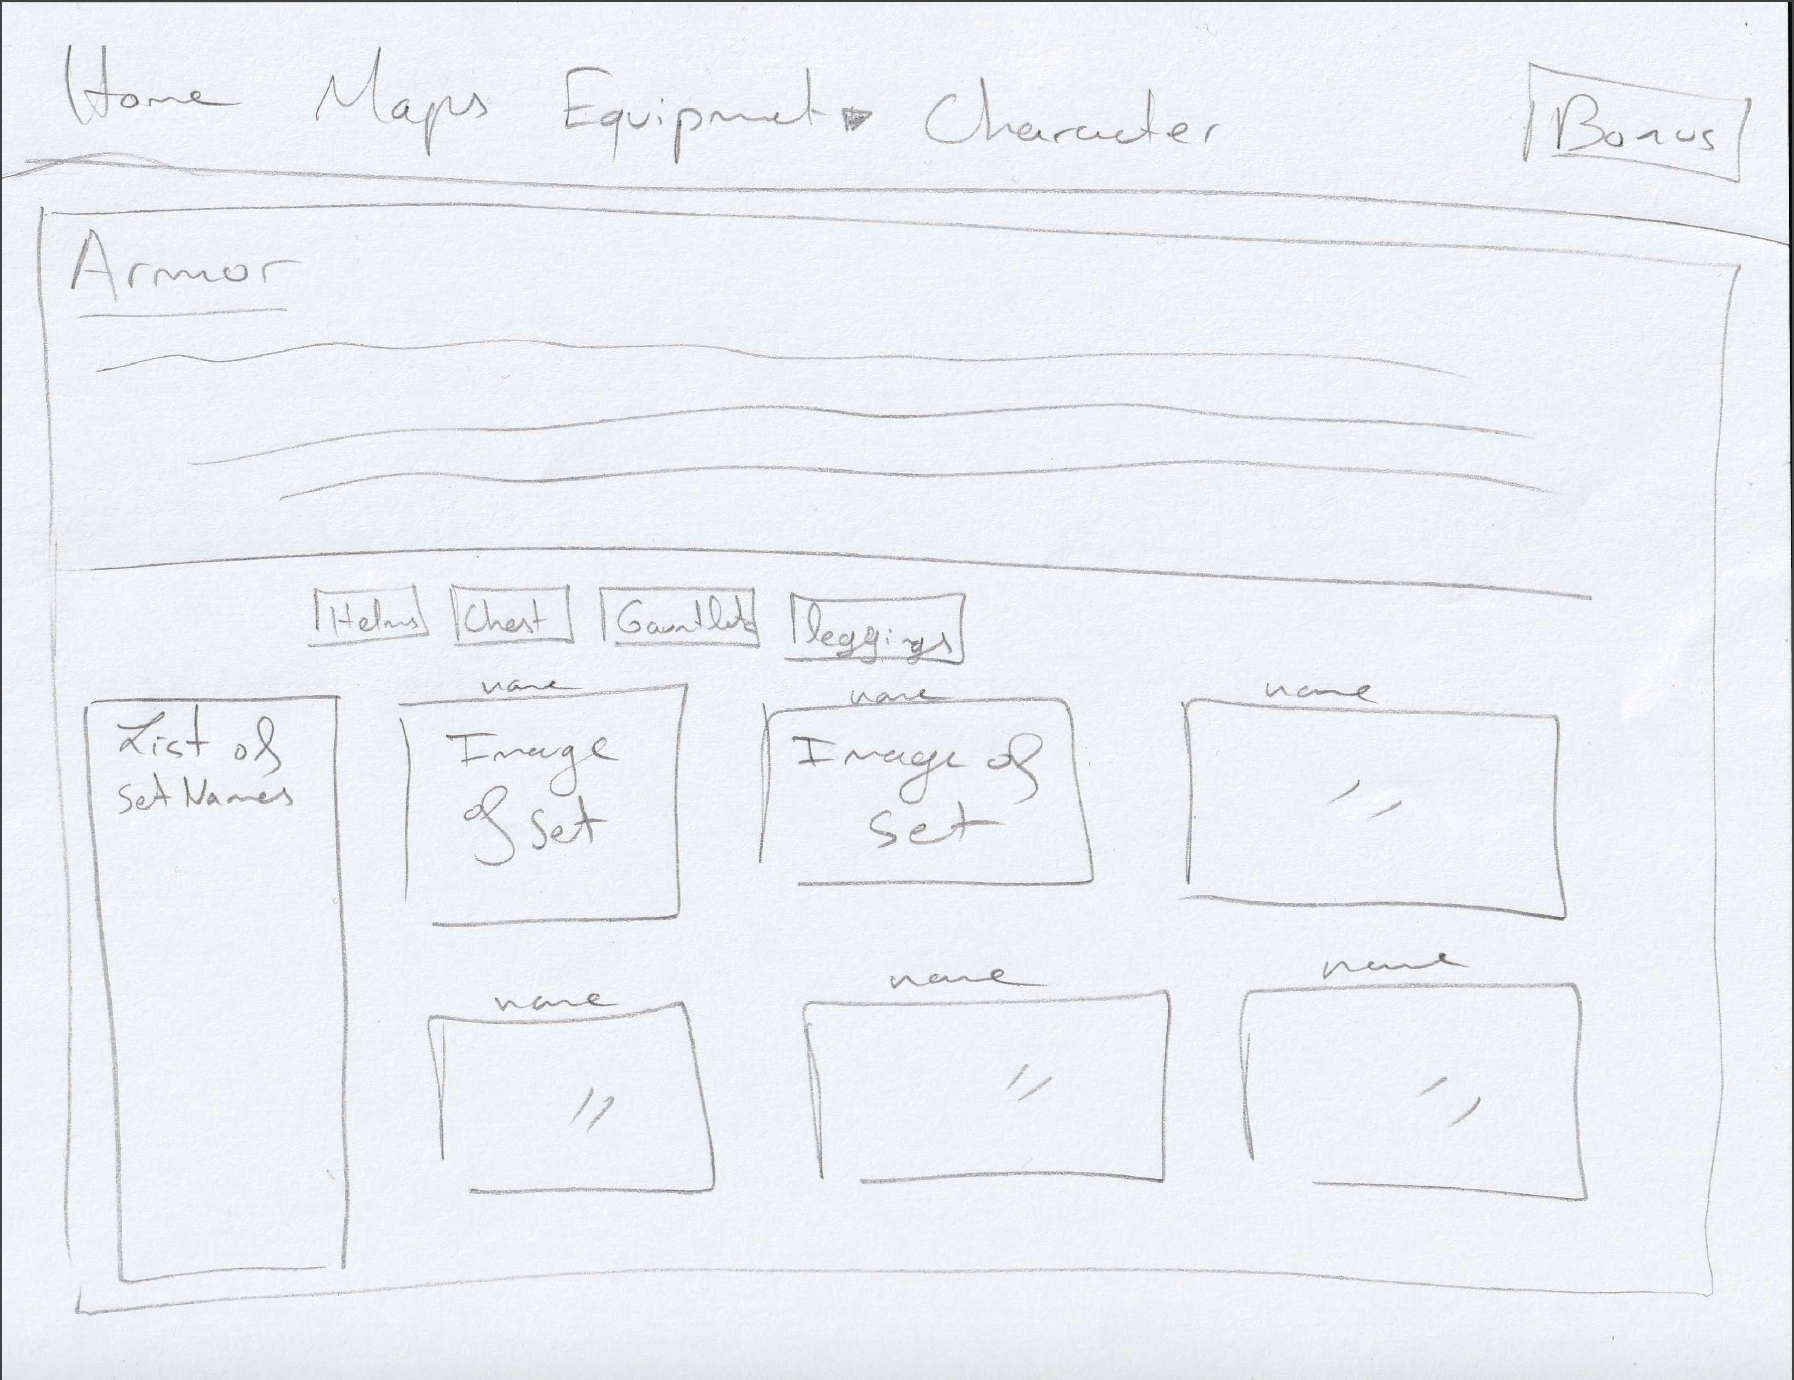 Home Maps Equipment Character Bonus
Armor
Helms Chest Gauntlets leggings
name name name
List of
set Names
Image
of set
Image of
set
name name name